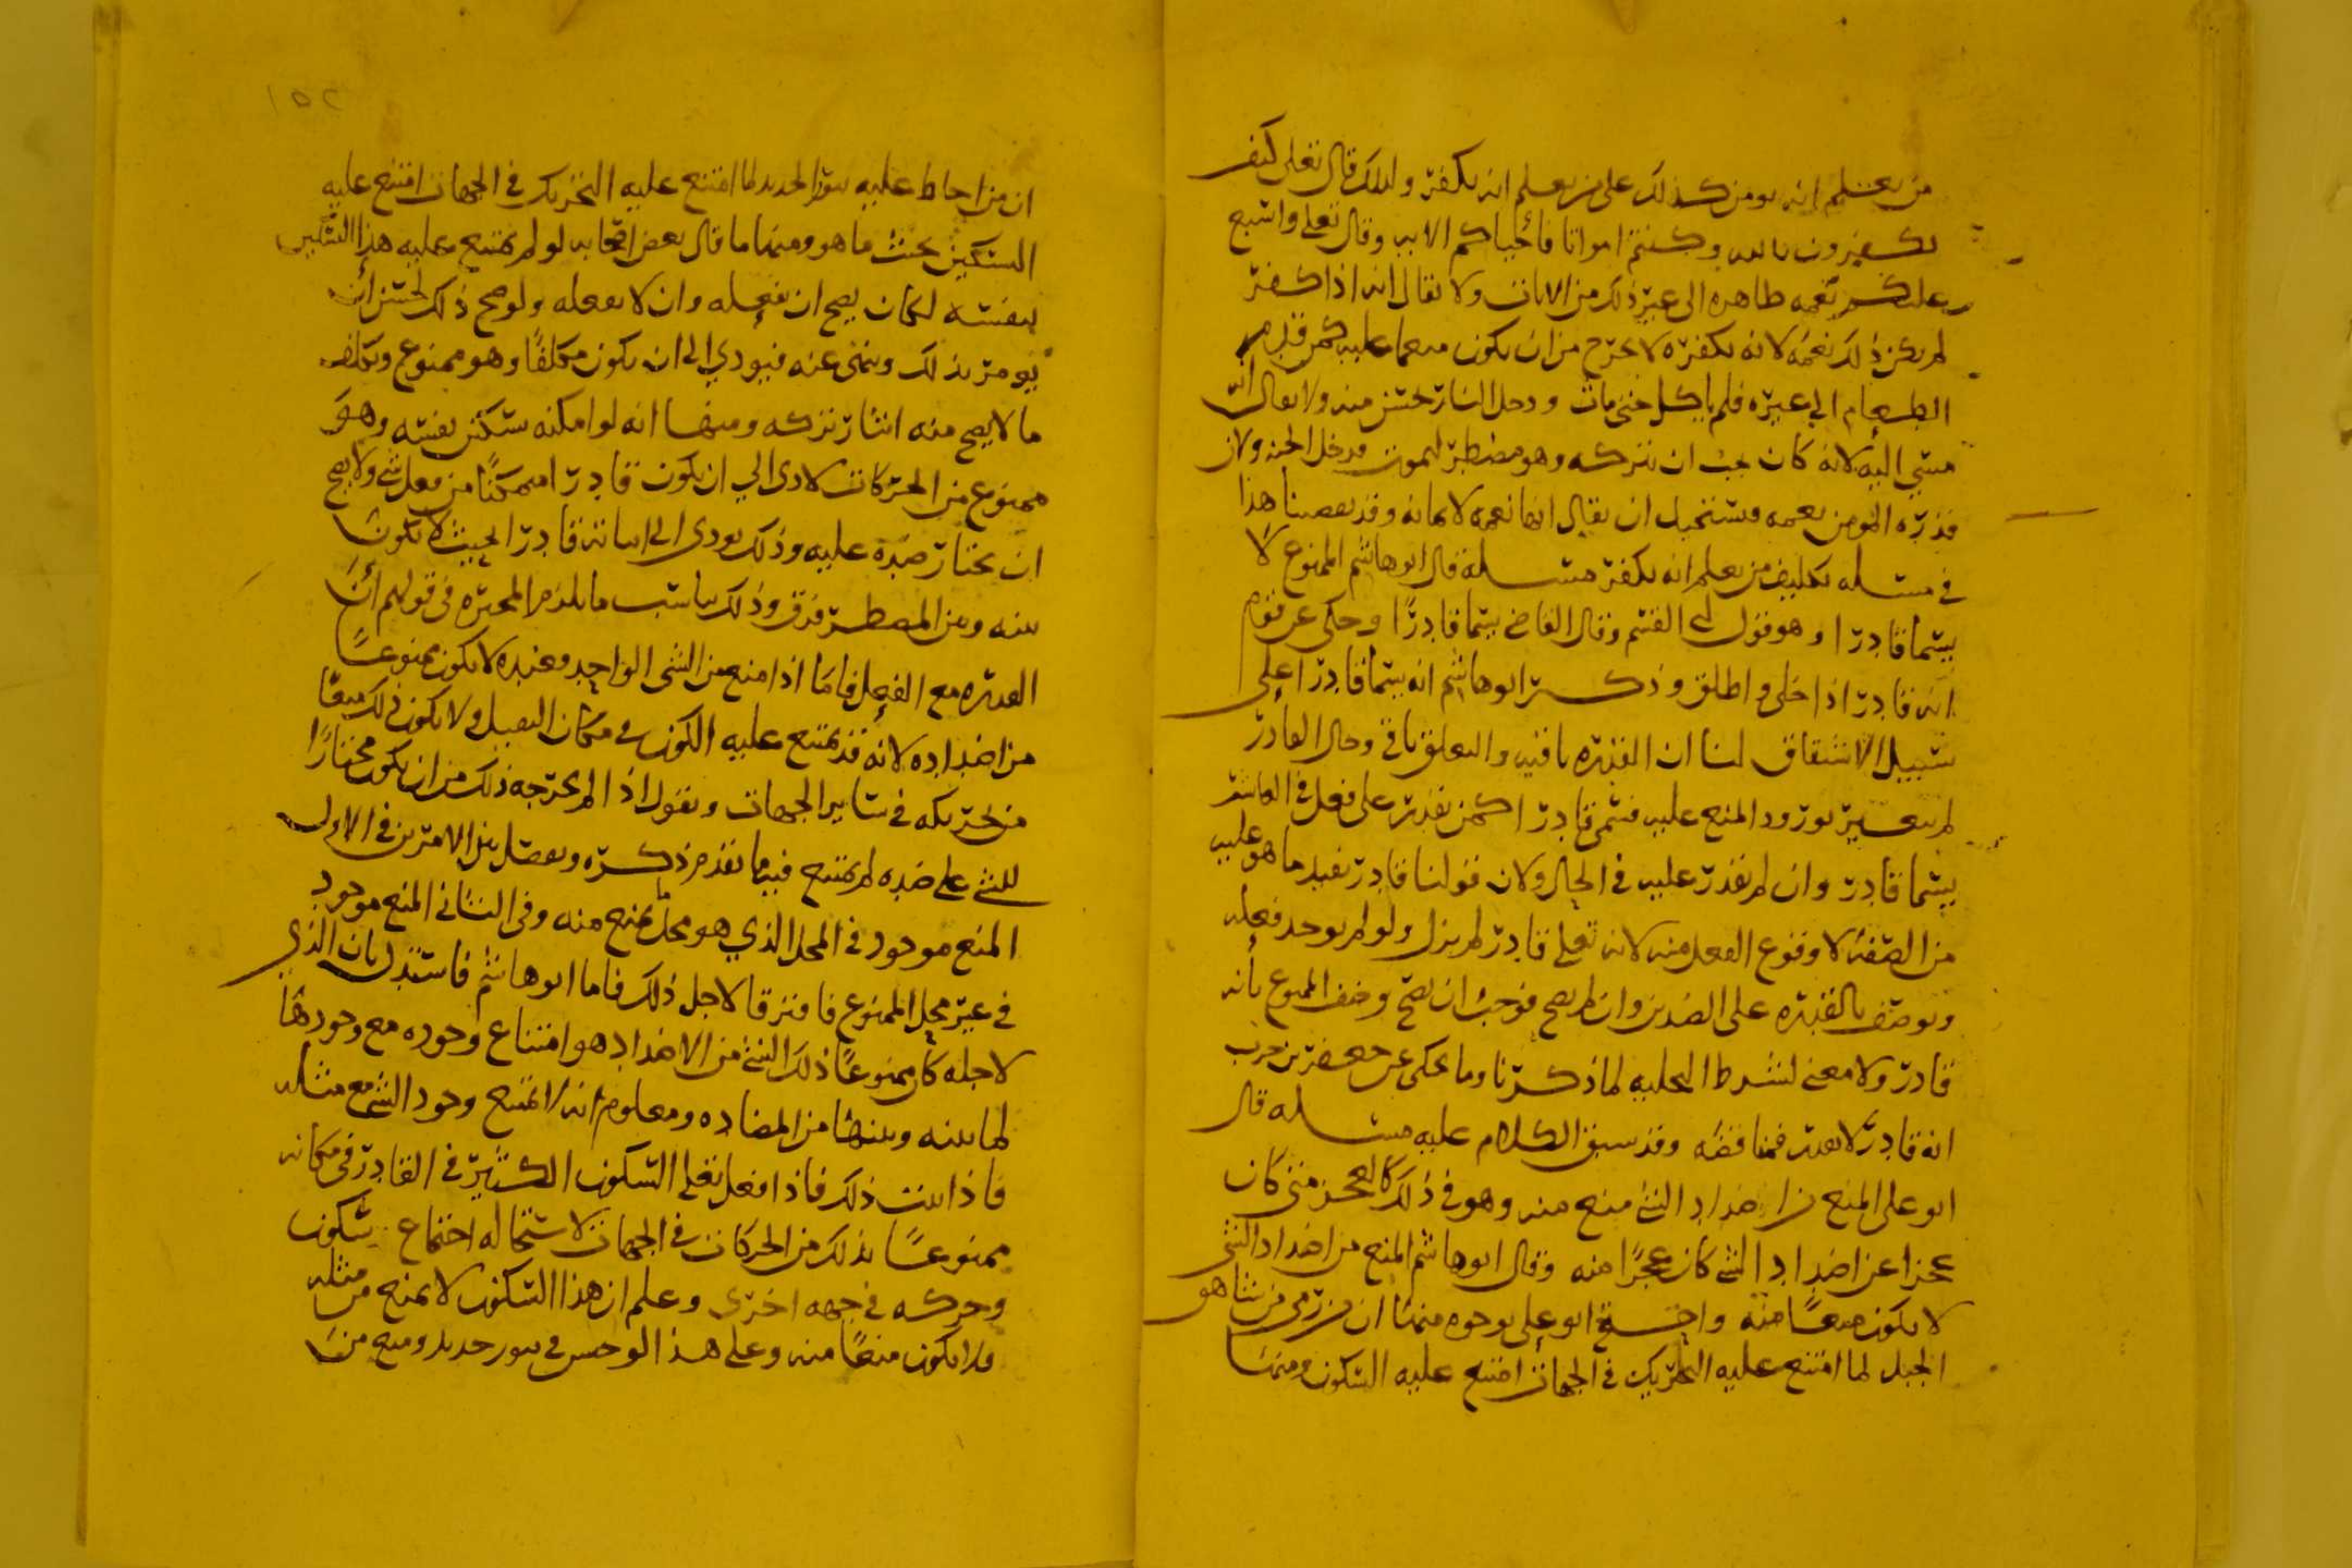 من يعلم انه يومن كذلك على من يعلم انه يكفر ولذلك قال تعلى كيف
تكفرون بالله وكنتم امواتا فأحياكم الايه وقال تعلى واسبغ
عليكم نعمه ظاهره الى غير ذلك من الايات ولا يقال انه اذا كفر
لم يكن ذلك نعمه لانه بكفره لا يخرج من ان يكون منعما عليه كمن قدم
الطعام الى غيره فلم ياكل حتى مات ودخل النار حسن منه ولا يقال انه
مسي اليه لانه كان يجب ان يتركه وهو مضطر ليموت فيدخل الجنه ولان
قدره المومن نعمه ويستحيل ان يقال انها نعمه لايمانه وقد تقصينا هذا
في مسله تكليف من يعلم انه يكفر مسله قال ابو هاشم الممنوع لا
يسما قادرا وهو قول ابي القسم وقال القاضي يسما قادرًا وحكى عن قوم
انه قادر اذا خلي واطلق وذكر ابو هاشم انه يسما قادرا على
سبيل الاشتقاق لنا ان القدره باقيه والتعلق باقي وحال القادر
لم يتغير بورود المنع عليه فسمي قادرا كمن يقدر على فعل في العاشر
يسما قادر وان لم يقدر عليه في الحال ولان قولنا قادر يفيد ما هو عليه
من الصفه لا وقوع الفعل منه لانه تعلى قادر لم يزل ولو لم يوجد فعله
ويوصف بالقدره على الضدين وان لم يصح فوجب ان يصح وصف الممنوع بأنه
قادر ولا معنى لشرط التخليه لما ذكرنا وما يحكى عن جعفر بن حرب
انه قادر لا يقدر فمناقضه وقد سبق الكلام عليه مسله قال
ابو علي المنع من اضداد الشي منع منه وهو في ذلك كالعجز متى كان
عجزا عن اضداد الشي كان عجزًا منه وقال ابو هاشم المنع من اضداد الشي
لا يكون منعًا منه واحتج ابو علي بوجوه منها ان من رمى من شاهق
الجبل لما امتنع عليه التحريك في الجهات امتنع عليه السكون ومنها
١٥٢
ان من احاط عليه سور الحديد لما امتنع عليه التحريك في الجهات امتنع عليه
التسكين بحيث ما هو ومنها ما قال بعض اصحابه لو لم يمتنع عليه هذا التسكين
لنفسه لكان يصح ان يفعله وان لا يفعله ولو صح ذلك لحسن ان
يومر بذلك وينهى عنه فيودي الى ان يكون مكلفًا وهو ممنوع وتكلف
ما لا يصح منه ايثار تركه ومنها انه لو امكنه سكن نفسه وهو
ممنوع من الحركات لادى الي ان يكون قادرا متمكنًا من فعل شي ولا يصح
ان يختار ضده عليه وذلك يودى الى اثباته قادرا بحيث لا يكون
بينه وبين المضطر فرق وذلك يناسب ما يلزم المجبره في قولهم ان
القدره مع الفعل فاما اذا منع من الشي الواحد فعنده لا يكون ممنوعًا
من اضداده لانه قد يمتنع عليه الكون في مكان الثقيل ولا يكون ذلك منعًا
من تحريكه في ساير الجهات ويقول اذا لم يخرجه ذلك من ان يكون مختارًا
للشي على ضده لم يمتنع فيما تقدم ذكره ويفصل بين الامرين في الاول
المنع موجود في المحل الذي هو محل ما يمنع منه وفي الثاني المنع موجود
في غير محل الممنوع فافترقا لاجل ذلك فاما ابو هاشم فاستدل بان الذي
لاجله كان ممنوعًا ذلك الشي من الاضداد هو امتناع وجوده مع وجودها
لما بينه وبينها من المضاده ومعلوم انه لا يمتنع وجود الشي مع مثله
فاذا ثبت ذلك فاذا فعل تعلى السكون الكثير في القادر في مكانه
ممنوعًا بذلك من الحركات في الجهات لاستحاله اجتماع سكون
وحركه في جهه اخرى وعلم ان هذا السكون لا يمنع من مثله
فلا يكون منعًا منه وعلى هذا لو حبس في سور حديد ومنع من